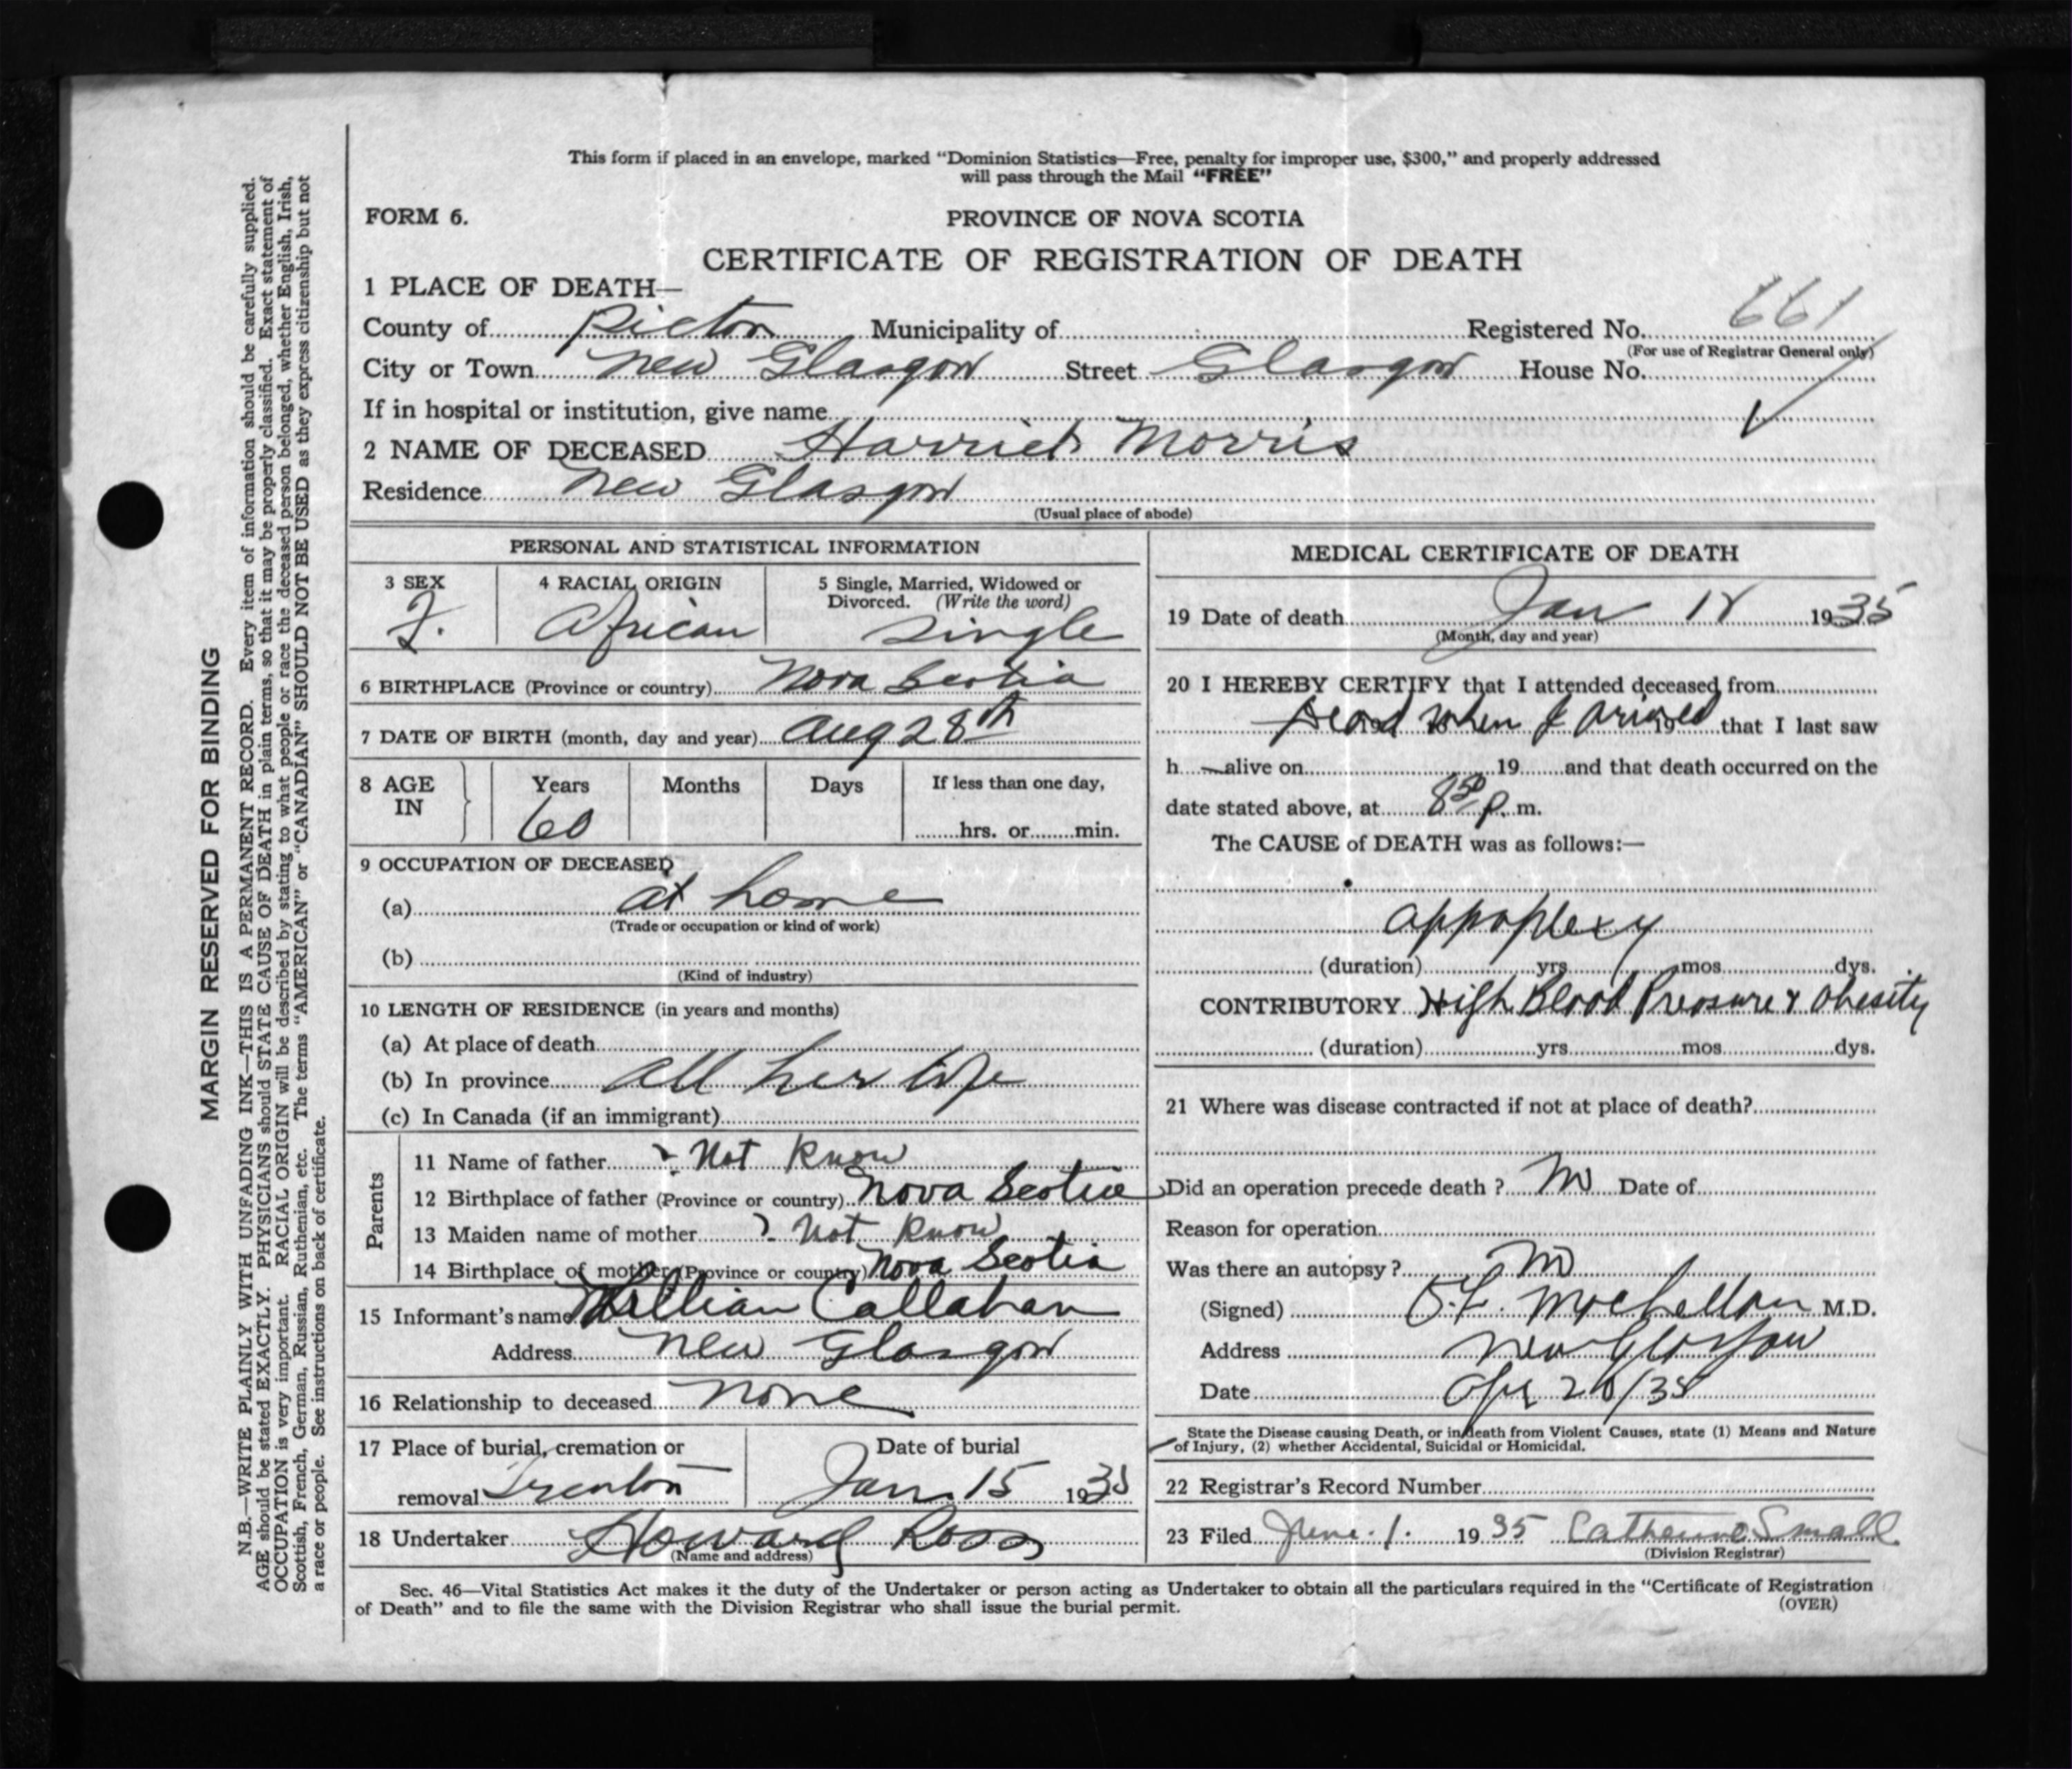 This form if placed in an envelope, marked “Dominion Statistics—Free, penalty for improper use, $300,” and properly addressed
will pass through the Mail “FREE”
FORM 6.
PROVINCE OF NOVA SCOTIA
CERTIFICATE OF REGISTRATION OF DEATH
1 PLACE OF DEATH—
County of Pictou Municipality of Registered No. 661
(For use of Registrar General only)
City or Town New Glasgow Street Glasgow House No.
If in hospital or institution, give name
2 NAME OF DECEASED Harriet Morris
Residence New Glasgow
(Usual place of abode)
PERSONAL AND STATISTICAL INFORMATION
3 SEX 4 RACIAL ORIGIN 5 Single, Married, Widowed or
Divorced. (Write the word)
F. African Single
6 BIRTHPLACE (Province or country) Nova Scotia
7 DATE OF BIRTH (month, day and year) Aug 28th
8 AGE IN Years Months Days If less than one day,
60 hrs. or min.
9 OCCUPATION OF DECEASED
(a) at home
(Trade or occupation or kind of work)
(b)
(Kind of industry)
10 LENGTH OF RESIDENCE (in years and months)
(a) At place of death
(b) In province all her life
(c) In Canada (if an immigrant)
Parents
11 Name of father ? Not Know
12 Birthplace of father (Province or country) Nova Scotia
13 Maiden name of mother ? Not Know
14 Birthplace of mother (Province or country) Nova Scotia
15 Informant's name Callahan
Address New Glasgow
16 Relationship to deceased none
17 Place of burial, cremation or Date of burial
removal Trenton Jan 15 1935
18 Undertaker Howard Ross
(Name and address)
MEDICAL CERTIFICATE OF DEATH
19 Date of death Jan 1935
(Month, day and year)
20 I HEREBY CERTIFY that I attended deceased from
Dead when I arived 19 that I last saw
h — alive on 19 and that death occurred on the
date stated above, at 8 p. m.
The CAUSE of DEATH was as follows:—
appoplexy
(duration) yrs. mos. dys.
CONTRIBUTORY High Blood Pressure & Obesity
(duration) yrs. mos. dys.
21 Where was disease contracted if not at place of death?
Did an operation precede death? No Date of
Reason for operation
Was there an autopsy? No
(Signed) M.D.
Address New Glasgow
Date
State the Disease causing Death, or in death from Violent Causes, state (1) Means and Nature
of Injury, (2) whether Accidental, Suicidal or Homicidal.
22 Registrar's Record Number
23 Filed June 1. 1935 Catherine Small
(Division Registrar)
Sec. 46—Vital Statistics Act makes it the duty of the Undertaker or person acting as Undertaker to obtain all the particulars required in the “Certificate of Registration
of Death” and to file the same with the Division Registrar who shall issue the burial permit.
(OVER)
MARGIN RESERVED FOR BINDING
N.B.—WRITE PLAINLY WITH UNFADING INK—THIS IS A PERMANENT RECORD. Every item of information should be carefully supplied.
AGE should be stated EXACTLY. PHYSICIANS should STATE CAUSE OF DEATH in plain terms, so that it may be properly classified. Exact statement of
OCCUPATION is very important. RACIAL ORIGIN will be described by stating to what people or race the deceased person belonged, whether English, Irish,
Scottish, French, German, Russian, Ruthenian, etc. The terms “AMERICAN” or “CANADIAN” SHOULD NOT BE USED as they express citizenship but not
a race or people. See instructions on back of certificate.